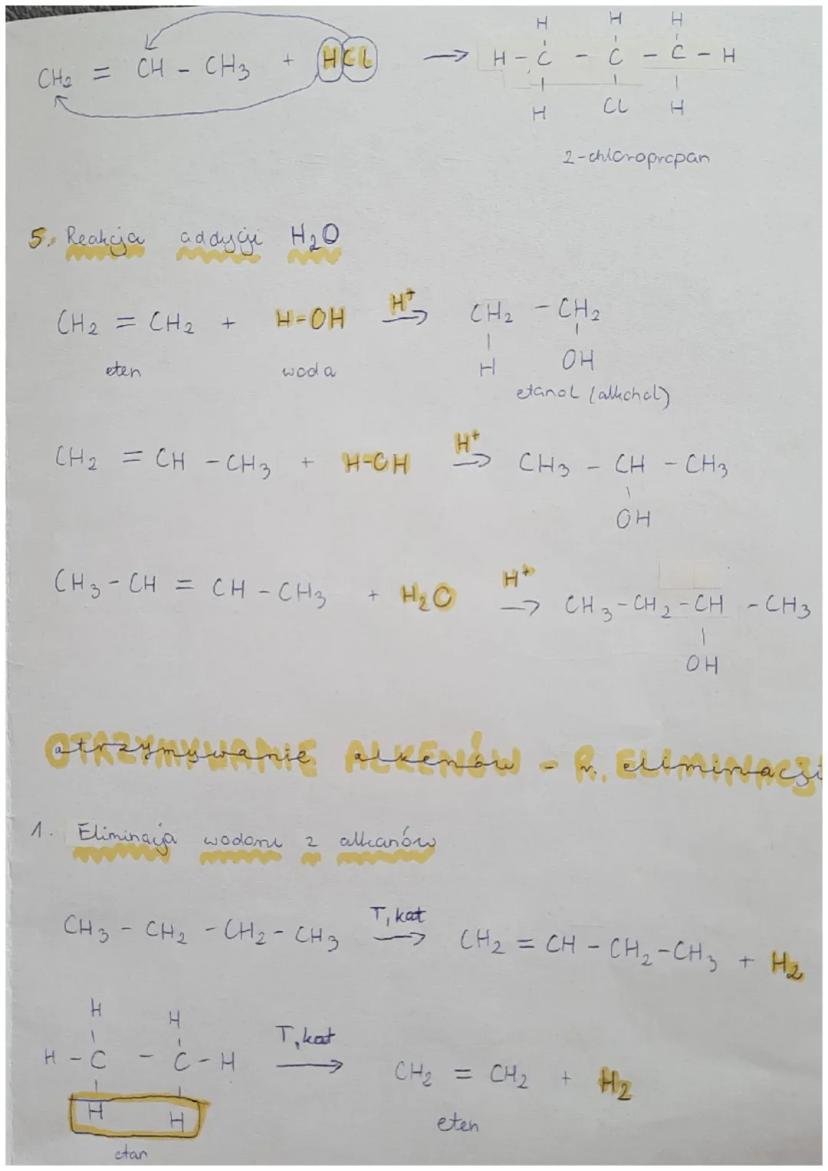 H H H
CH2 = CH - CH3 + HCl → H - C - C - C - H
H Cl H
2-chloropropan
5. Reakcja addycji H2O
CH2 = CH2 + H-OH H+ → CH2 - CH2
H OH
eten woda
etanol (alkohol)
CH2 = CH - CH3 + H-OH H+ → CH3 - CH - CH3
OH
CH3 - CH = CH - CH3 + H2O H+ → CH3 - CH2 - CH - CH3
OH
OTRZYMYWANIE ALKENÓW - R. ELIMINACJI
otrzymywanie alkenów - r. eliminacji
1. Eliminacja wodoru z alkanów
CH3 - CH2 - CH2 - CH3 T, kat → CH2 = CH - CH2 - CH3 + H2
H H
H - C - C - H T, kat → CH2 = CH2 + H2
H H
etan eten